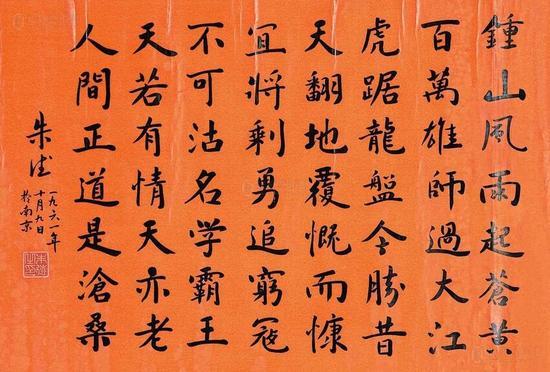 鍾山風雨起蒼黃
百萬雄師過大江
虎踞龍盤今勝昔
天翻地覆慨而慷
宜將剩勇追窮冦
不可沽名学霸王
天若有情天亦老
人間正道是滄桑
朱德
一九六一年
十月九日
於南京